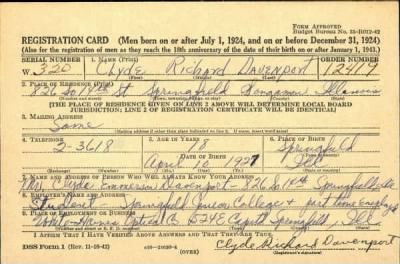 FORM APPROVED
Budget Bureau No. 33-R012-42
REGISTRATION CARD (Men born on or after July 1, 1924, and on or before December 31, 1924)
(Also for the registration of men as they reach the 18th anniversary of the date of their birth on or after January 1, 1943.)
SERIAL NUMBER 1. NAME (Print) ORDER NUMBER
W 320 Clyde Richard Davenport 12411A
2. PLACE OF RESIDENCE (Print)
826 So 14th St Springfield Sangamon Illinois
[THE PLACE OF RESIDENCE GIVEN ON LINE 2 ABOVE WILL DETERMINE LOCAL BOARD
JURISDICTION; LINE 2 OF REGISTRATION CERTIFICATE WILL BE IDENTICAL]
3. MAILING ADDRESS
Same
4. TELEPHONE 5. AGE IN YEARS 6. PLACE OF BIRTH
2-3618 18 Springfield
DATE OF BIRTH
April 10 1927 Ill
7. NAME AND ADDRESS OF PERSON WHO WILL ALWAYS KNOW YOUR ADDRESS
Mrs Clyde Emmerson Davenport - 826 So 14th Springfield Ill
8. EMPLOYER'S NAME AND ADDRESS
Student - Springfield Junior College + part time employed
9. PLACE OF EMPLOYMENT OR BUSINESS
Optical Co. 524 E Capitol Springfield, Ill
I AFFIRM THAT I HAVE VERIFIED ABOVE ANSWERS AND THAT THEY ARE TRUE.
DSS Form 1 (Rev. 11-16-42) (OVER) Clyde Richard Davenport